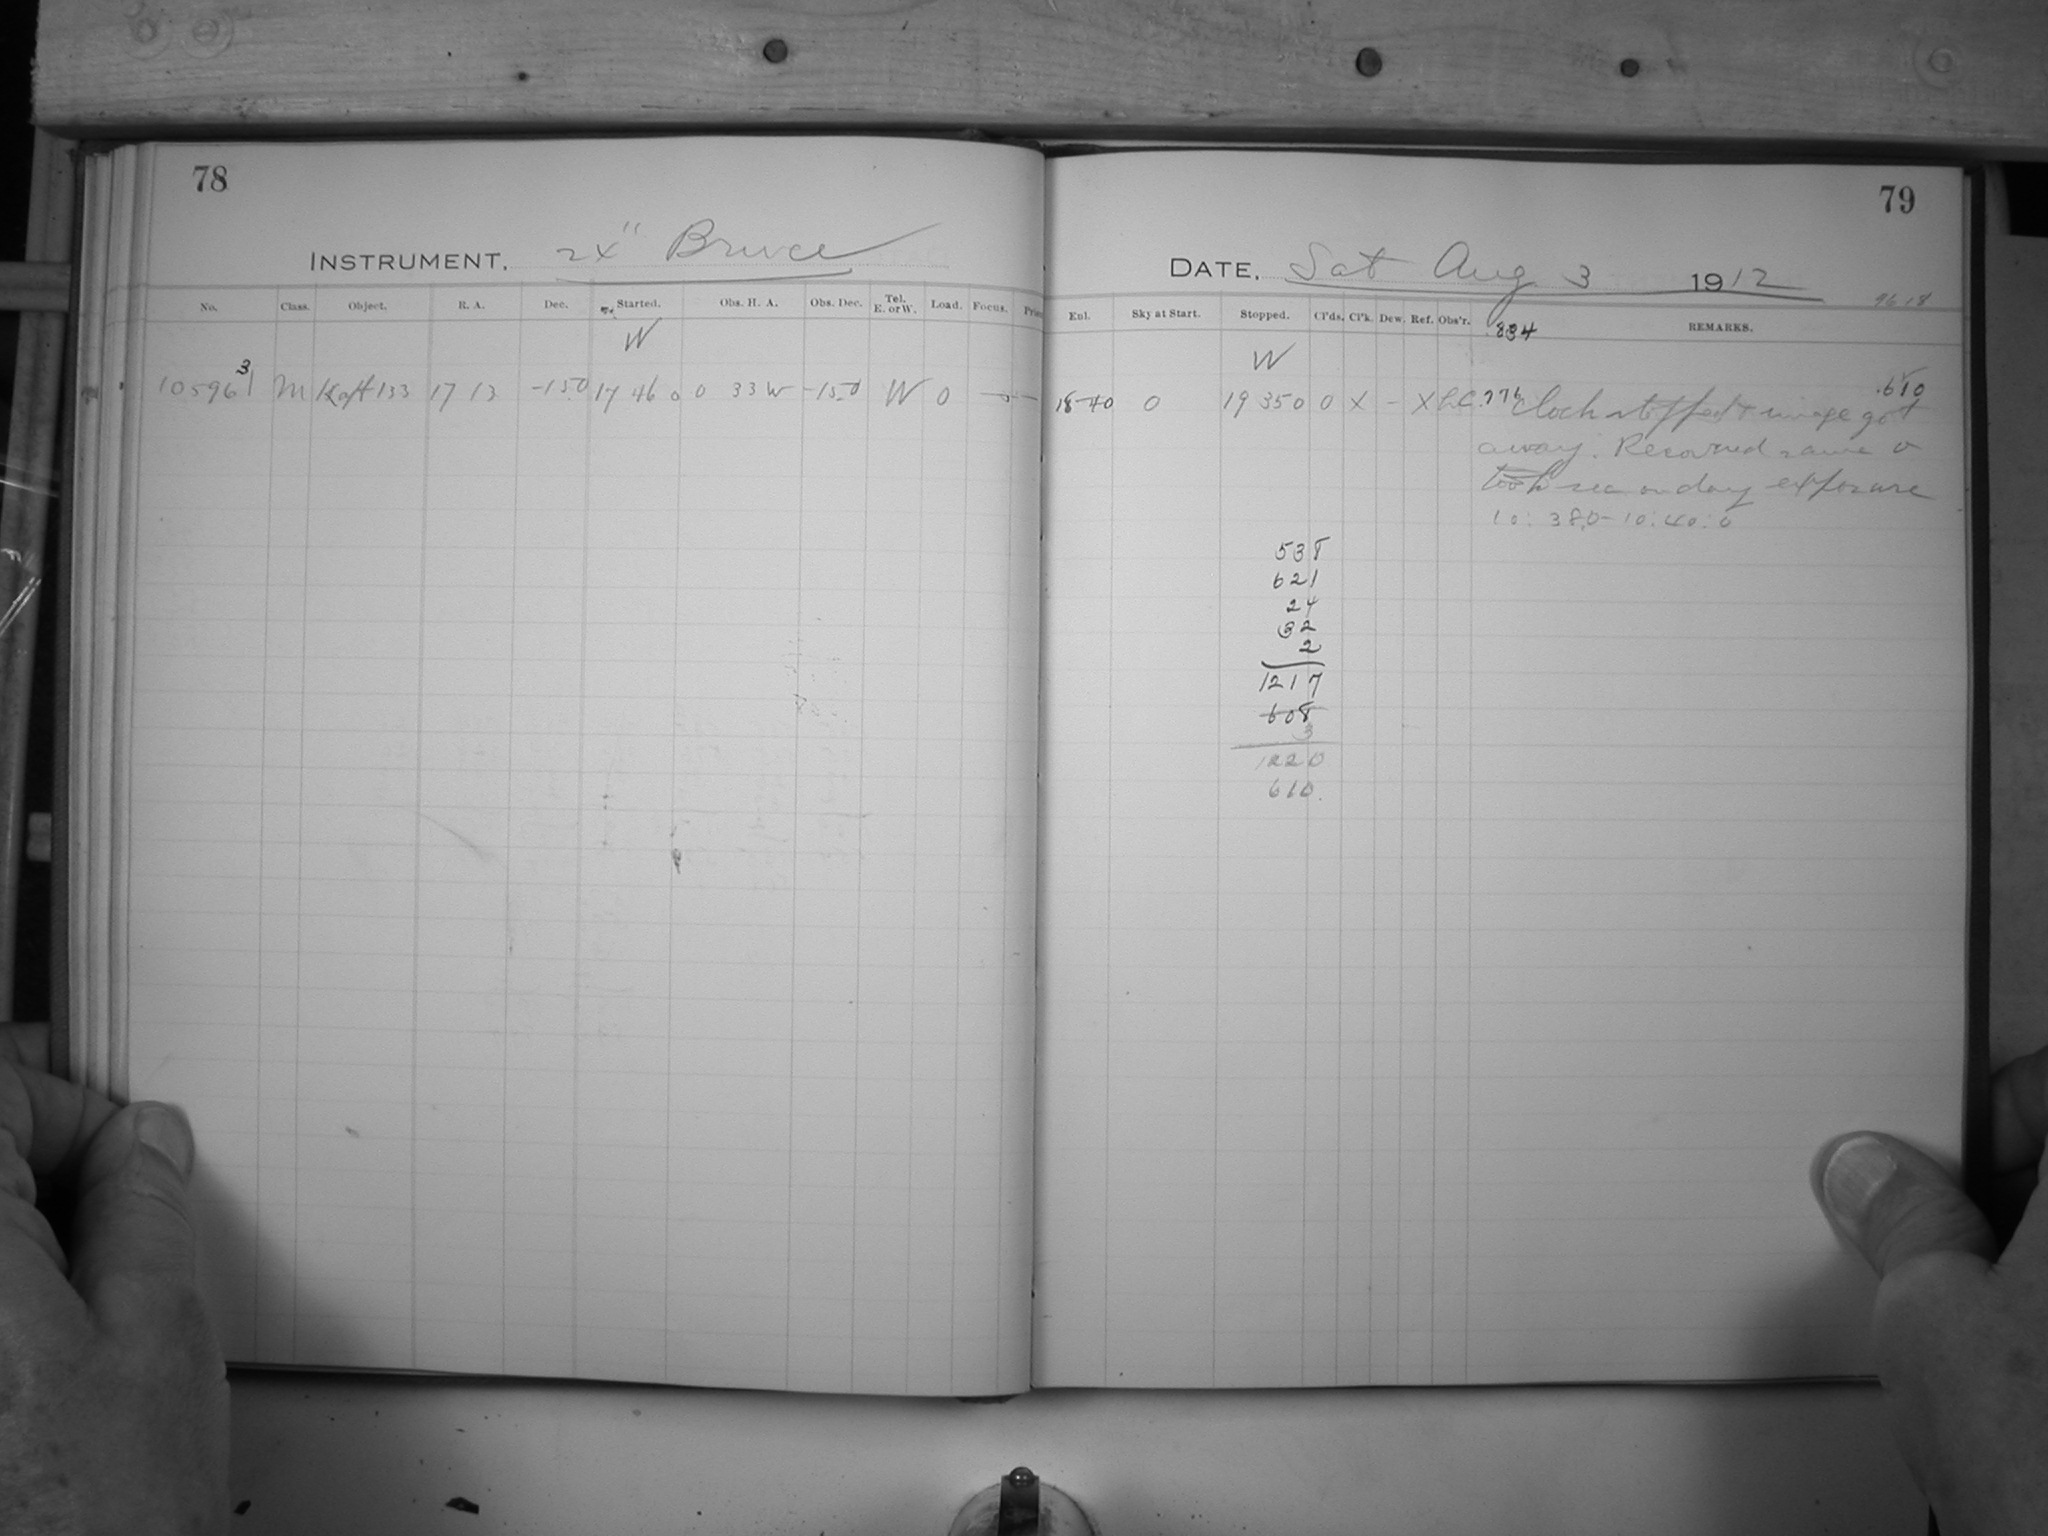 78
INSTRUMENT, 24" Bruce
No. Class. Object. R. A. Dec. Started. Obs. H. A. Obs. Dec. Tel. E. or W. Load. Focus.
W
10596 3 M Kapt 133 17 13 -15.0 17 46 0 0 33 W -15.0 W 0 —
79
DATE, Sat Aug 3 1912
9618
Exl. Sky at Start. Stopped. Cl'ds. Cl'k. Dew. Ref. Obs'r. REMARKS.
.834
W
18 40 0 19 35 0 0 X - X .776 Clock stopped & image got .610
away. Recovered same &
took secondary exposure
10: 38.0 - 10:40:0
538
621
24
32
2
1217
608
3
1220
610